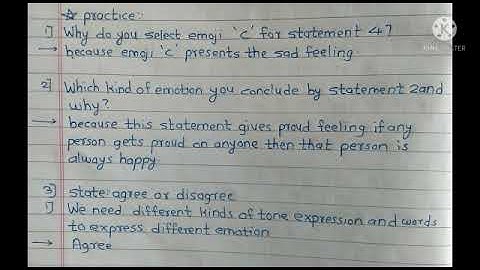 ☆ practice:
1) Why do you select emoji 'c' for statement 4?
→ because emoji 'c' presents the sad feeling.
2] Which kind of emotion you conclude by statement 2 and
why?
→ because this statement gives proud feeling if any
person gets proud on anyone then that person is
always happy
3] state agree or disagree
1) We need different kinds of tone expression and words
to express different emotion
→ Agree